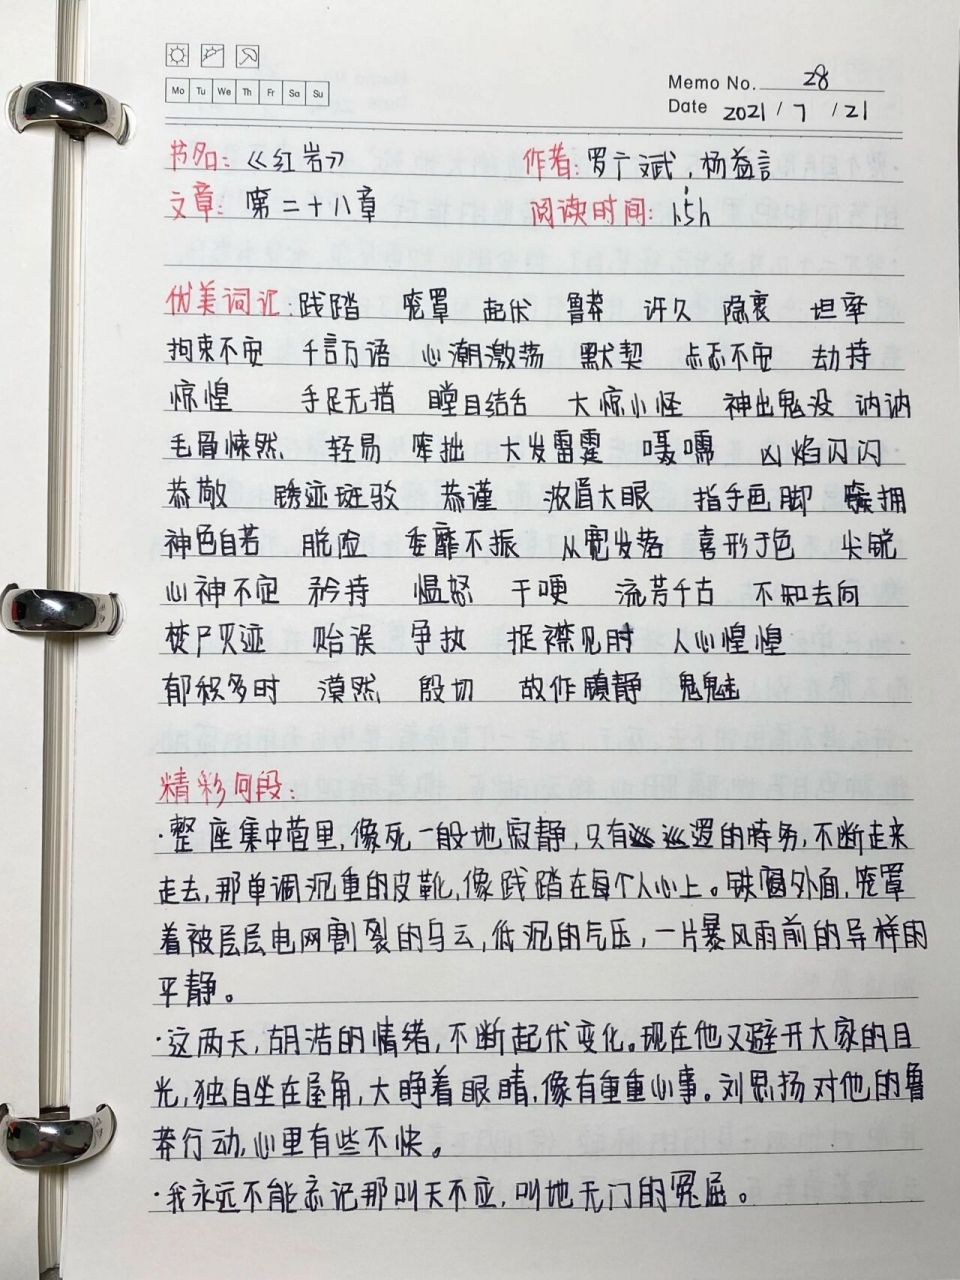 Mo Tu We Th Fr Sa Su
Memo No. 28
Date 2021 / 7 / 21
书名:《红岩》 作者:罗广斌,杨益言
文章:第二十八章 阅读时间:1.5h
优美词汇:践踏 笼罩 起伏 鲁莽 许久 隐衷 坦率
拘束不安 千言万语 心潮激荡 默契 忐忑不安 劫持
惊惶 手足无措 瞠目结舌 大惊小怪 神出鬼没 讷讷
毛骨悚然 轻易 笨拙 大发雷霆 嗫嚅 凶焰闪闪
恭敬 锈迹斑驳 恭谨 浓眉大眼 指手画脚 簇拥
神色自若 脱险 委靡不振 从宽发落 喜形于色 尖锐
心神不安 矜持 愠怒 干哽 流芳千古 不知去向
焚尸灭迹 贻误 争执 捉襟见肘 人心惶惶
郁积多时 漠然 殷切 故作镇静 鬼魅
精彩句段:
·整座集中营里,像死一般地寂静,只有巡逻的特务,不断走来
走去,那单调沉重的皮靴,像践踏在每个人心上。铁窗外面,笼罩
着被层层电网割裂的乌云,低沉的气压,一片暴风雨前的异样的
平静。
·这两天,胡浩的情绪,不断起伏变化。现在他又避开大家的目
光,独自坐在屋角,大睁着眼睛,像有重重心事。刘思扬对他的鲁
莽行动,心里有些不快。
·我永远不能忘记那叫天不应,叫地无门的冤屈。